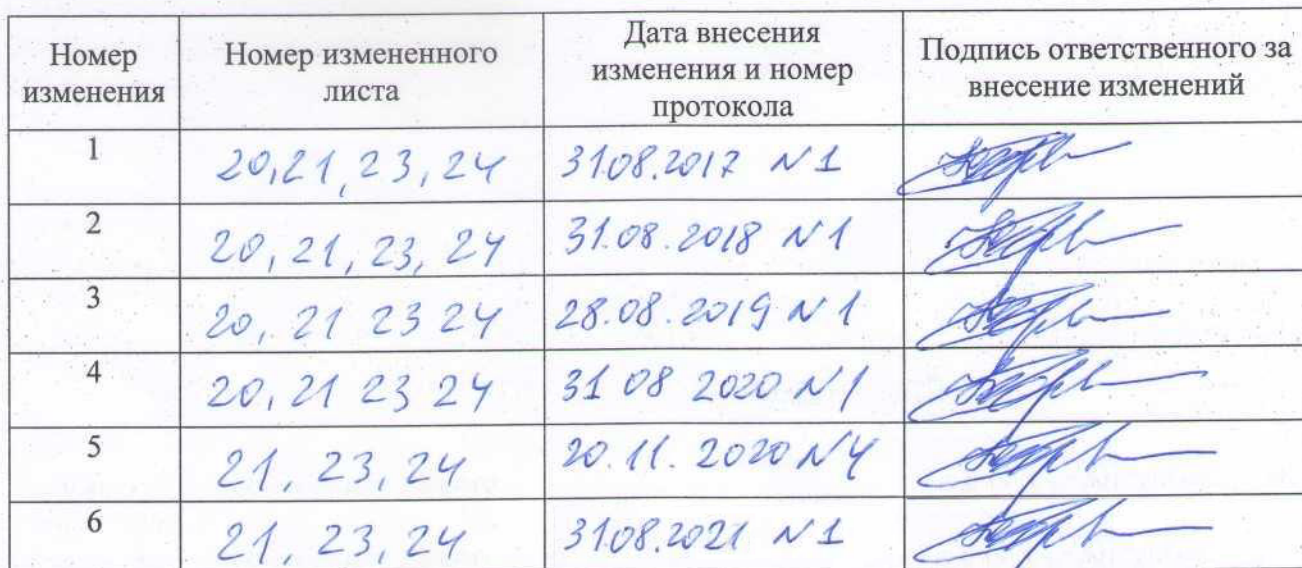 Номер изменения Номер измененного листа Дата внесения изменения и номер протокола Подпись ответственного за внесение изменений
1 20,21,23,24 31.08.2017 N1
2 20,21,23,24 31.08.2018 N1
3 20, 21 23 24 28.08.2019 N1
4 20,21 23 24 31 08 2020 N1
5 21, 23, 24 20.11.2020 N4
6 21, 23, 24 31.08.2021 N1